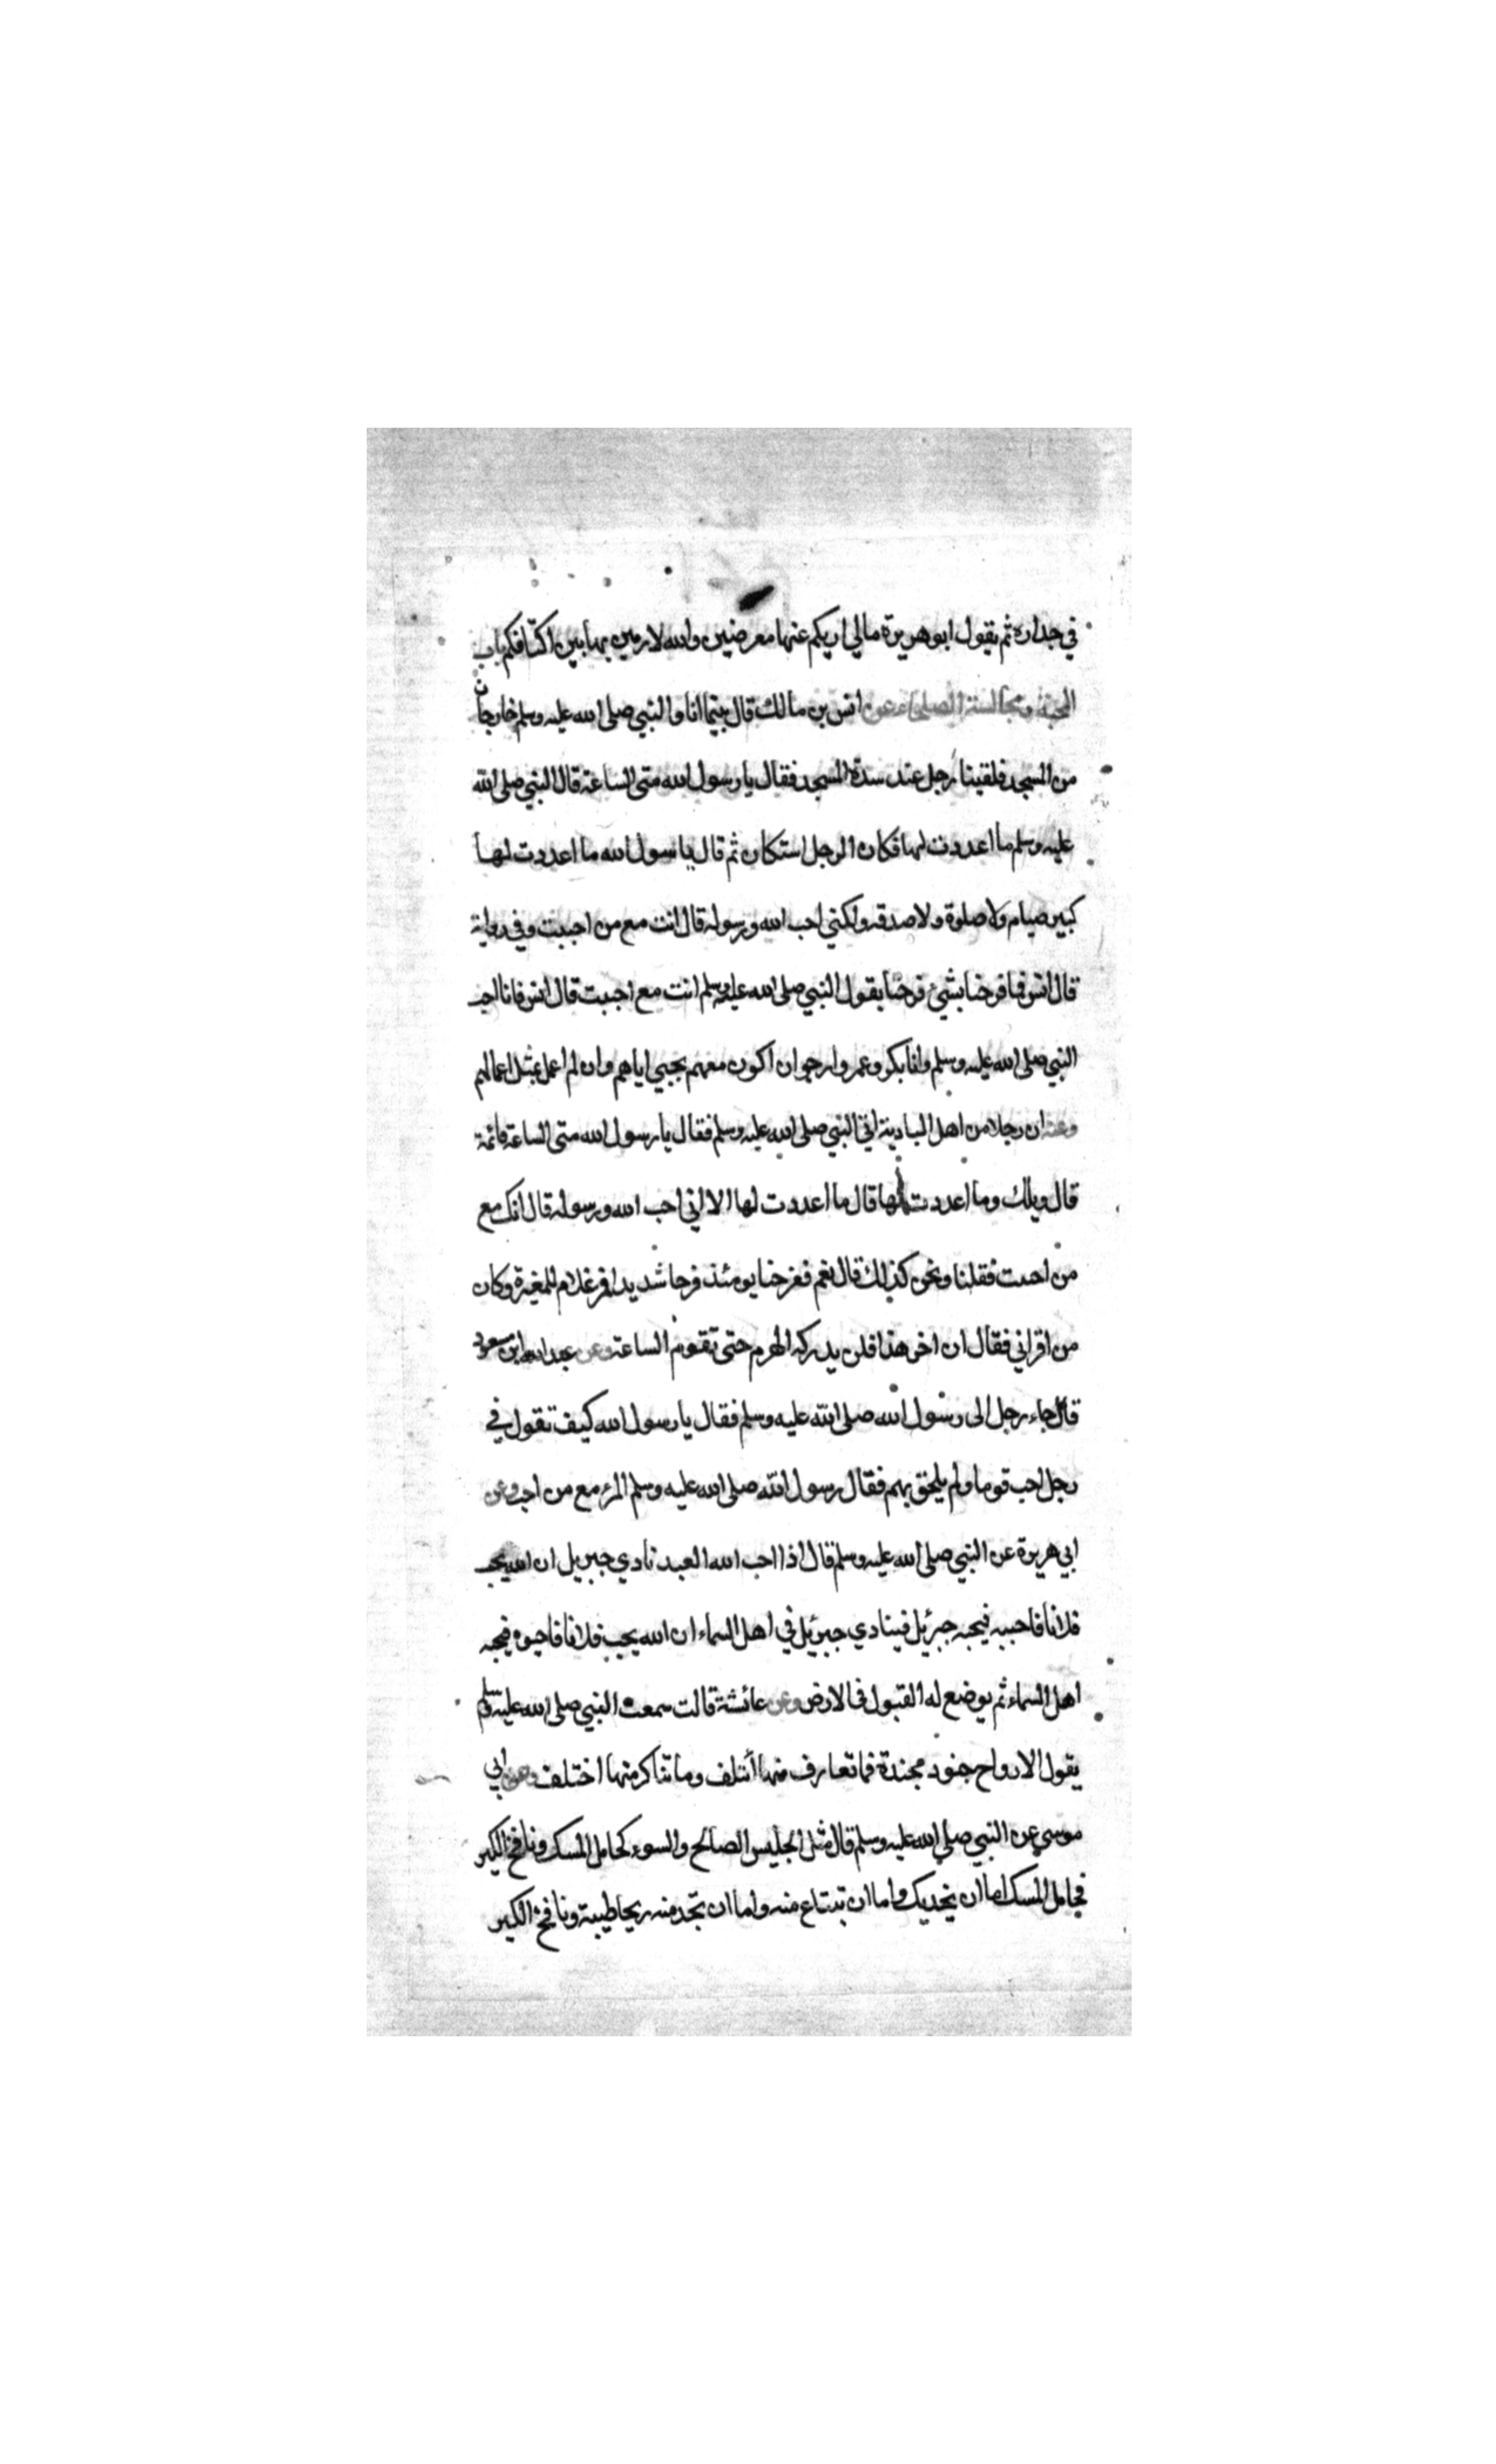 في جداره ثم يقول ابو هريرة مالي اريكم عنها معرضين والله لارمين بها بين اكتافكم باب
المحبة ومجالسة الصلحاء عن انس بن مالك قال بينما انا والنبي صلى الله عليه وسلم خارجان
من المسجد فلقينا رجل عند سدة المسجد فقال يا رسول الله متى الساعة قال النبي صلى الله
عليه وسلم ما اعددت لها فكان الرجل استكان ثم قال يا رسول الله ما اعددت لها
كبير صيام ولا صلوة ولا صدقة ولكني احب الله ورسوله قال انت مع من احببت وفي رواية
قال انس فما فرحنا بشئ فرحنا بقول النبي صلى الله عليه وسلم انت مع احببت قال انس فانا احب
النبي صلى الله عليه وسلم وابا بكر وعمر وارجو ان اكون معهم بحبي اياهم وان لم اعمل بمثل اعمالهم
وعنه ان رجلا من اهل البادية اتى النبي صلى الله عليه وسلم فقال يا رسول الله متى الساعة قائمة
قال ويلك وما اعددت لها قال ما اعددت لها الا اني احب الله ورسوله قال انك مع
من احببت فقلنا ونحن كذلك قال نعم ففرحنا يومئذ فرحا شديدا فمر غلام للمغيرة وكان
من اقراني فقال ان اخر هذا فلن يدركه الهرم حتى تقوم الساعة وعن عبد الله ابن مسعود
قال جاء رجل الى رسول الله صلى الله عليه وسلم فقال يا رسول الله كيف تقول في
رجل احب قوما ولم يلحق بهم فقال رسول الله صلى الله عليه وسلم المرء مع من احب وعن
ابي هريرة عن النبي صلى الله عليه وسلم قال اذا احب الله العبد نادي جبريل ان الله يحب
فلانا فاحببه فيحبه جبرئيل فينادي جبرئيل في اهل السماء ان الله يحب فلانا فاحبوه فيحبه
اهل السماء ثم يوضع له القبول في الارض وعن عائشة قالت سمعت النبي صلى الله عليه وسلم
يقول الارواح جنود مجندة فما تعارف منها أئتلف وما تناكر منها اختلف وعن ابي
موسي عن النبي صلى الله عليه وسلم قال مثل الجليس الصالح والسوء كحامل المسك ونافخ الكير
فحامل المسك اما ان يحذيك واما ان تبتاع منه واما ان تجد منه ريحا طيبة ونافخ الكير